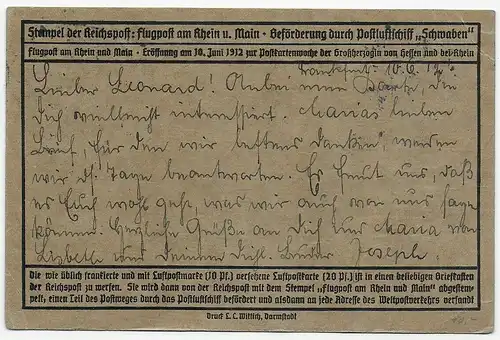 Stempel der Reichspost: Flugpost am Rhein u. Main · Beförderung durch Postluftschiff „Schwaben"
Flugpost am Rhein und Main · Eröffnung am 10. Juni 1912 zur Postkartenwoche der Großherzogin von Hessen und bei Rhein
Frankfurt 10.6.
Lieber Leonard! Anbei eine Karte, die
Dich vielleicht interessiert. Marias lieben
Brief, für den wir bestens danken, werden
wir ds. Tage beantworten. Es freut uns, daß
es Euch wohl geht, was wir auch von uns sagen
können. Herzliche Grüße an Dich und Maria von
Lisbeth und Deinem Bruder Joseph.
Die wie üblich frankierte und mit Luftpostmarke (10 Pf.) versehene Luftpostkarte (20 Pf.) ist in einen beliebigen Briefkasten
der Reichspost zu werfen. Sie wird dann von der Reichspost mit dem Stempel „Flugpost am Rhein und Main" abgestem-
pelt, einen Teil des Postweges durch das Postluftschiff befördert und alsdann an jede Adresse des Weltpostverkehrs versandt
Druck L. C. Wittich, Darmstadt